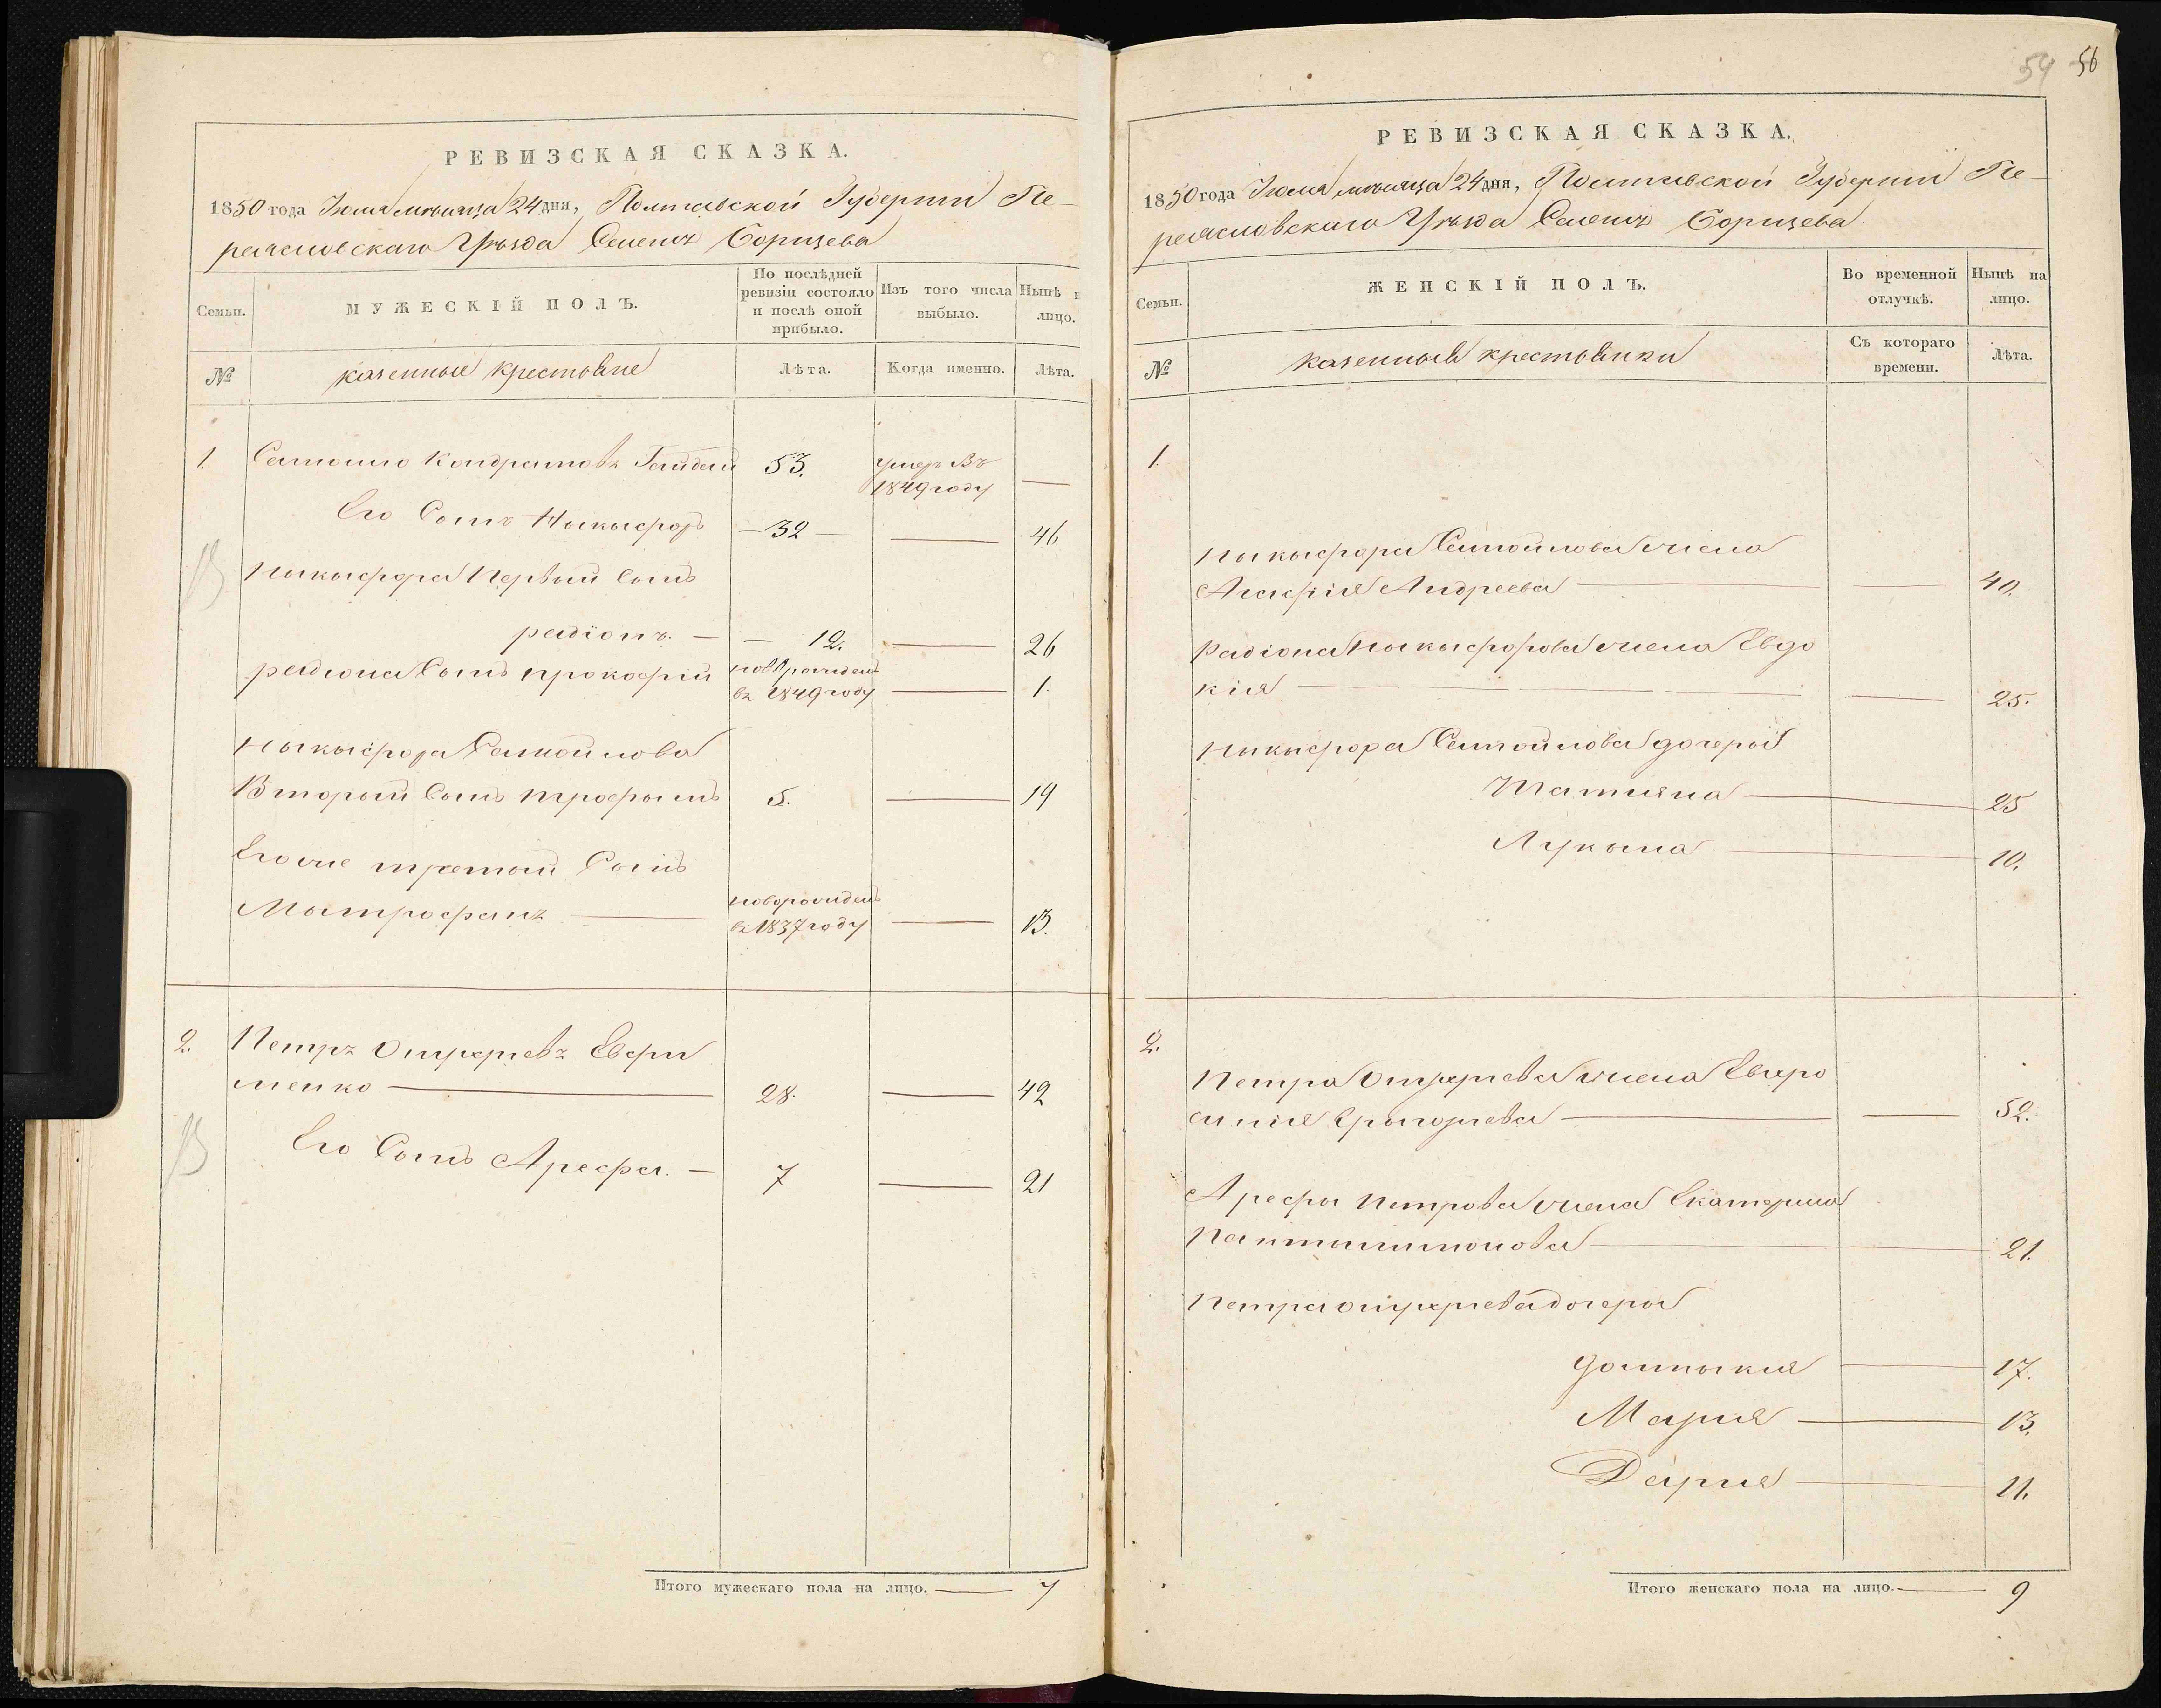 РЕВИЗСКАЯ СКАЗКА.
1850 года Іюля мѣсяца 24 дня, Полтавской Губерніи Пе-
реясловскаго Уѣзда Селенія Борщева
Семьи.
МУЖЕСКІЙ ПОЛЪ.
По послѣдней
ревизіи состояло
и послѣ оной
прибыло.
Изъ того числа
выбыло.
Нынѣ
лицо.
№
казенные крестьяне
Лѣта.
Когда именно.
Лѣта.
1. Самойло Кондратовъ Гайдай 53. умеръ Въ
1849 году —
Его Сынъ Ныкыфоръ — 32 — — 46
Ныкыфора Первый Сынъ
радіонъ. — — 12. — 26
радіона Сынъ прокофій новорожден
въ 1849 году — 1.
Ныкыфора Самойлова
Вторый Сынъ трофымъ 5. — 19
Его же третый Сынъ
Мытрофанъ — новорожденъ
въ 1837 году — 13.
2. Петръ Онуфріевъ Евфи
менко — 28. — 42
Его Сынъ Арефа. — 7 — 21
Итого мужескаго пола на лицо. — 7
54 56
РЕВИЗСКАЯ СКАЗКА.
1850 года Іюля мѣсяца 24 дня, Полтавской Губерніи Пе-
реясловскаго Уѣзда Селенія Борщева
Семьи.
ЖЕНСКІЙ ПОЛЪ.
Во временной
отлучкѣ.
Нынѣ на
лицо.
№
казенныя крестьянки
Съ котораго
времени.
Лѣта.
1.
Ныкыфора Самойлова жена
Агафія Андреева — 40.
Радіона Ныкыфорова жена Евдо
кія — — 25.
Ныкыфора Самойлова дочеры
Татияна — 25
Лукына — 10.
2.
Петра Онуфріева жена Евфро
синія Грыгоріева — — 52.
Арефы Петрова жена Екатерина
Пантылимонова — 21.
Петра Онуфріева дочеры
— 17.
Марія — 13.
Дарія — 11.
Итого женскаго пола на лицо. — 9